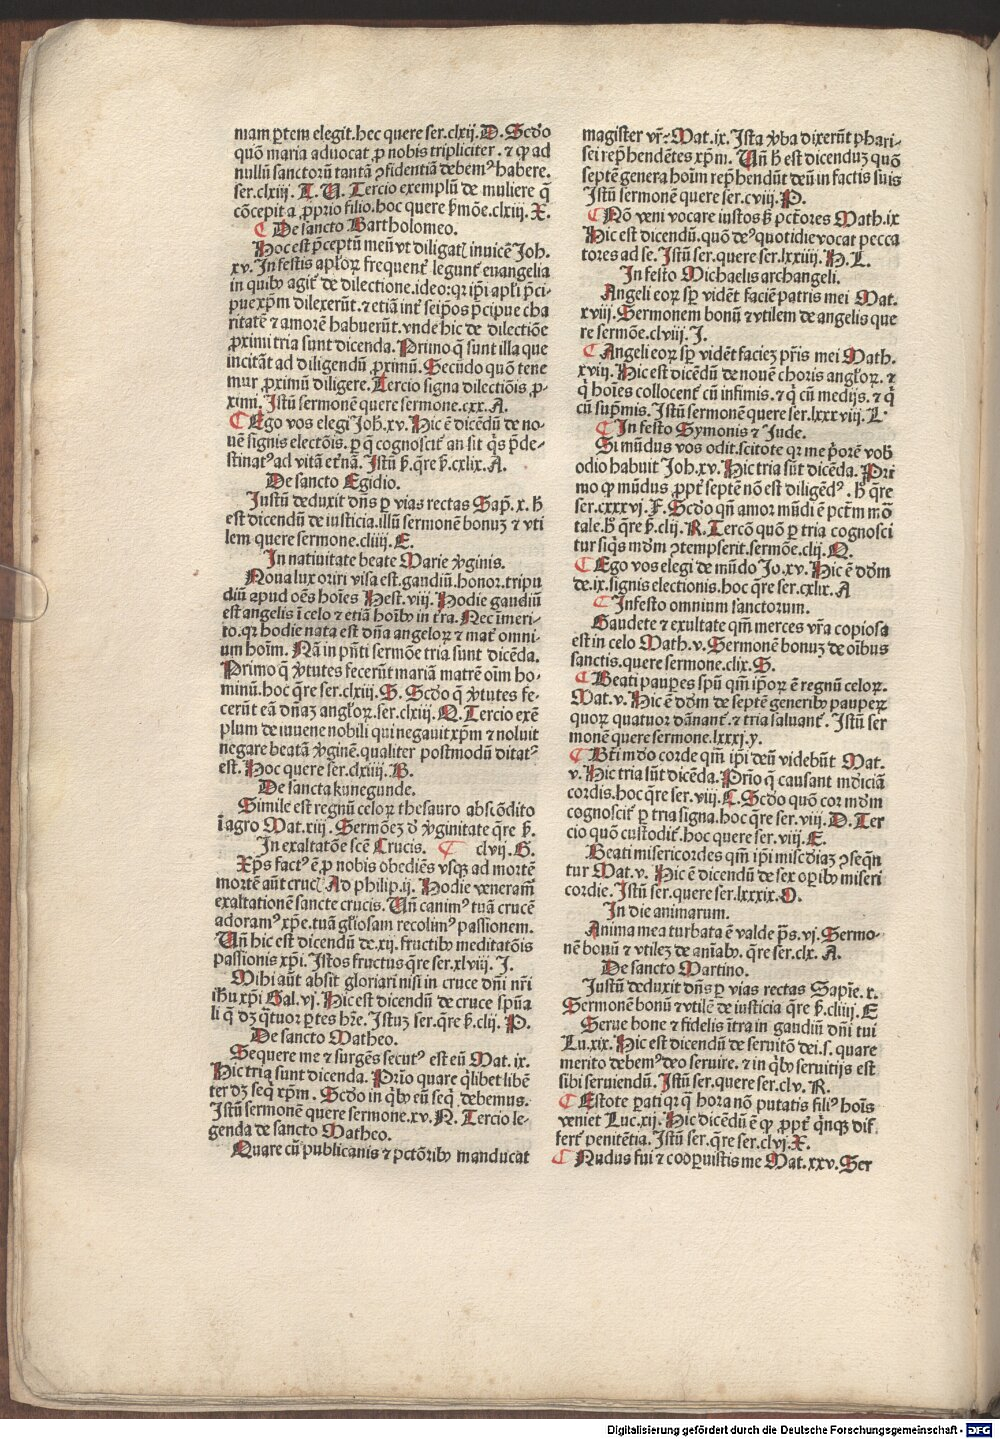 niam ꝑtem elegit.hec quere ser.clxij.D.Scd̄o
quō maria aduocat ꝓ nobis tripliciter.⁊ ꝙ ad
nullū sanctorū tantā ꝯfidentiā debemꝰ habere.
ser.clxiij. L.U. Tercio exemplū de muliere q̄
cōcepit a ꝓprio filio.hoc quere ẜmōe.clxiij. X.
¶ De sancto Bartholomeo.
Hoc est p̄ceptū meū vt diligatꝭ inuicē Joh.
xv.In festis apl'oꝝ frequent̾ legunt̾ euangelia
in quibꝰ agit̾ de dilectione.ideo:qꝛ ip̄i apl'i p̄ci-
pue xp̄m dilexerūt.⁊ etiā int̾ seip̄os p̄cipue cha
ritatē ⁊ amorē habuerūt.vnde hic de dilectiōe
ꝓximi tria sunt dicenda. Primo q̄ sunt illa que
incitāt ad diligendū ꝓximū. Secūdo quō tene
mur ꝓximū diligere. Tercio signa dilectiōis ꝓ-
ximi. Istū sermonē quere sermone.cxx.A.
¶ Ego vos elegi Joh̄.xv. Hic ē dicēdū de no-
uē signis electōis. ꝑ q̄ cognoscit̾ an sit q̇s p̄de-
stinatꝰ ad vitā et̾nā. Istū ẜ.q̄re ẜ.cxlix.A.
De sancto Egidio.
Iustū deduxit dn̄s ꝑ vias rectas Sap̄.x. h̄
est dicendū de iusticia.illū sermonē bonuꝫ ⁊ vti
lem quere sermone.cliiij.E.
In natiuitate beate Marie ꝟginis.
Noua lux oriri visa est.gaudiū.honor.tripu
diū apud oēs hoīes Hest.viij. Hodie gaudiū
est angelis ī celo ⁊ etiā hoībꝰ in t̾ra. Nec imeri-
to.qꝛ hodie nata est dn̄a angeloꝝ ⁊ mat̾ omni-
um hoīm. Nā in pn̄ti sermōe tria sunt dicēda.
Primo q̄ ꝟtutes fecerūt mariā matrē oīm ho-
minū.hoc q̄re ser.clxiij. S. Scd̄o q̄ ꝟtutes fe-
cerūt eā dn̄aꝫ angl'oꝝ.ser.clxiij. Q. Tercio exē
plum de iuuene nobili qui negauit xp̄m ⁊ noluit
negare beatā ꝟginē.qualiter postmodū ditatꝰ
est. Hoc quere ser.clxiiij. B.
De sancta kunegunde.
Simile est regnū celoꝝ thesauro abscōdito
ī agro Mat.xiij. Sermōeꝫ d̄ ꝟginitate q̄re ẜ.
In exaltatōe scē Crucis. ¶ clvij.G.
Xp̄s factꝰ ē ꝓ nobis obediēs vsqꝫ ad mortē
mortē aūt crucꝭ Ad philip.ij. Hodie veneram̄
exaltationē sancte crucis. Un̄ canimꝰ tuā crucē
adoramꝰ xp̄e.tuā gl'iosam recolimꝰ passionem.
Un̄ hic est dicendū de.xij. fructibꝰ meditatōis
passionis xp̄i. Istos fructus q̄re ser.xlviij. I.
Mihi aūt absit gloriari nisi in cruce dn̄i nr̄i
ih̄u xp̄i Gal.vj. Hic est dicendū de cruce spūa
li q̄ dꝫ q̄tuor ꝑtes hr̄e. Istuꝫ ser.q̄re ẜ.clij. P.
De sancto Matheo.
Sequere me ⁊ surgēs secutꝰ est eū Mat.ix.
Hic tria sunt dicenda. Prīo quare q̇libet libē
ter dꝫ seq̇ xp̄m. Scd̄o in q̇bꝰ eū seq̇ debemus.
Istū sermonē quere sermone.xv.N. Tercio le-
genda de sancto Matheo.
Quare cū publicanis ⁊ pctōribꝰ manducat
magister vr̄: Mat.ix. Ista ꝟba dixerūt phari-
sei rep̄hendētes xp̄m. Un̄ h̄ est dicenduꝫ quō
septē genera hoīm rep̄hendūt deū in factis suis
Istū sermonē quere ser.cviij. P.
¶ Nō veni vocare iustos ẜ pctōres Math.ix
Hic est dicendū.quō deꝰ quotidie vocat pecca
tores ad se. Istū ser.quere ser.lxxiiij. H.L.
In festo Michaelis archangeli.
Angeli eoꝝ sꝑ vidēt faciē patris mei Mat.
xviij. Sermonem bonū ⁊ vtilem de angelis que
re sermōe.clviij. I.
¶ Angeli eoꝝ sꝑ vidēt facieꝫ pr̄is mei Math.
xviij. Hic est dicēdū de nouē choris angl'oꝝ. ⁊
q̇ hoīes collocent̾ cū infimis.⁊ q̇ cū medijs.⁊ q̇
cū sup̄mis. Istū sermonē quere ser.lxxxviij. L
¶ In festo Symonis ⁊ Jude.
Si mūdus vos odit.scitote qꝛ me p̄orē vob̄
odio habuit Joh.xv. Hic tria sūt dicēda. Pri
mo ꝙ mūdus ꝓpt̾ septē nō est diligēdꝰ. h̄ q̄re
ser.cxxxvj. F. Scd̄o qn̄ amor mūdi ē pctm̄ moꝛ
tale.h̄ q̄re ẜ.clij. R. Tercō quō ꝑ tria cognosci
tur siq̇s mdm̄ ꝯtempserit.sermōe.clij. Q.
¶ Ego vos elegi de mūdo Jo.xv. Hic ē dd̄m
de.ix.signis electionis.hoc q̄re ser.cxlix.A
¶ In festo omnium sanctorum.
Gaudete ⁊ exultate qm̄ merces vr̄a copiosa
est in celo Math.v. Sermonē bonuꝫ de oībus
sanctis.quere sermone.clix.G.
¶ Beati pauꝑes spū qm̄ ip̄oꝝ ē regnū celoꝝ.
Mat.v. Hic ē dd̄m de septē generibꝰ pauꝑeꝝ
quoꝝ quatuor dānant̾.⁊ tria saluant̾. Istū ser
monē quere sermone.lxxxj.y.
¶ Bt̄i mdo corde qm̄ ip̄i deū videbūt Mat.
v. Hic tria sūt dicēda. Prīo q̄ causant mdiciā
cordis.hoc q̄re ser.viij. C. Scd̄o quō cor mdm̄
cognoscit̾ ꝑ tria signa.hoc q̄re ser.viij. D. Ter
cio quō custodit̾.hoc quere ser.viij. E.
Beati misericordes qm̄ ip̄i misc̄diaꝫ ꝯseqn̄
tur Mat.v. Hic ē dicendū de sex oꝑibꝰ miseri
cordie. Istū ser.quere ser.lxxxix.O.
In die animarum.
Anima mea turbata ē valde p̄s.vj. Sermo-
nē bonū ⁊ vtileꝫ de aīabꝰ. q̄re ser.clx. A.
De sancto Martino.
Iustū deduxit dn̄s ꝑ vias rectas Sapīe.x.
Sermonē bonū ⁊vtilē de iusticia q̄re ẜ.cliiij. E
Serue bone ⁊ fidelis īt̾ra in gaudiū dn̄i tui
Lu.xix. Hic est dicendū de seruitō dei.s. quare
merito debemꝰ deo seruire. ⁊ in q̇bꝰ seruitijs est
sibi seruiendū. Istū ser.quere ser.clv. R.
¶ Estote ꝑati qꝛ q̄ hora nō putatis filiꝰ hoīs
veniet Luc.xij. Hic dicēdū ē ꝙ ꝓpt̾ q̇nqꝫ dif
fert̾ penitētia. Istū ser.q̄re ser.clvj. X.
¶ Nudus fui ⁊ cooꝑuistis me Mat.xxv. Ser
Digitalisierung gefördert durch die Deutsche Forschungsgemeinschaft - DFG